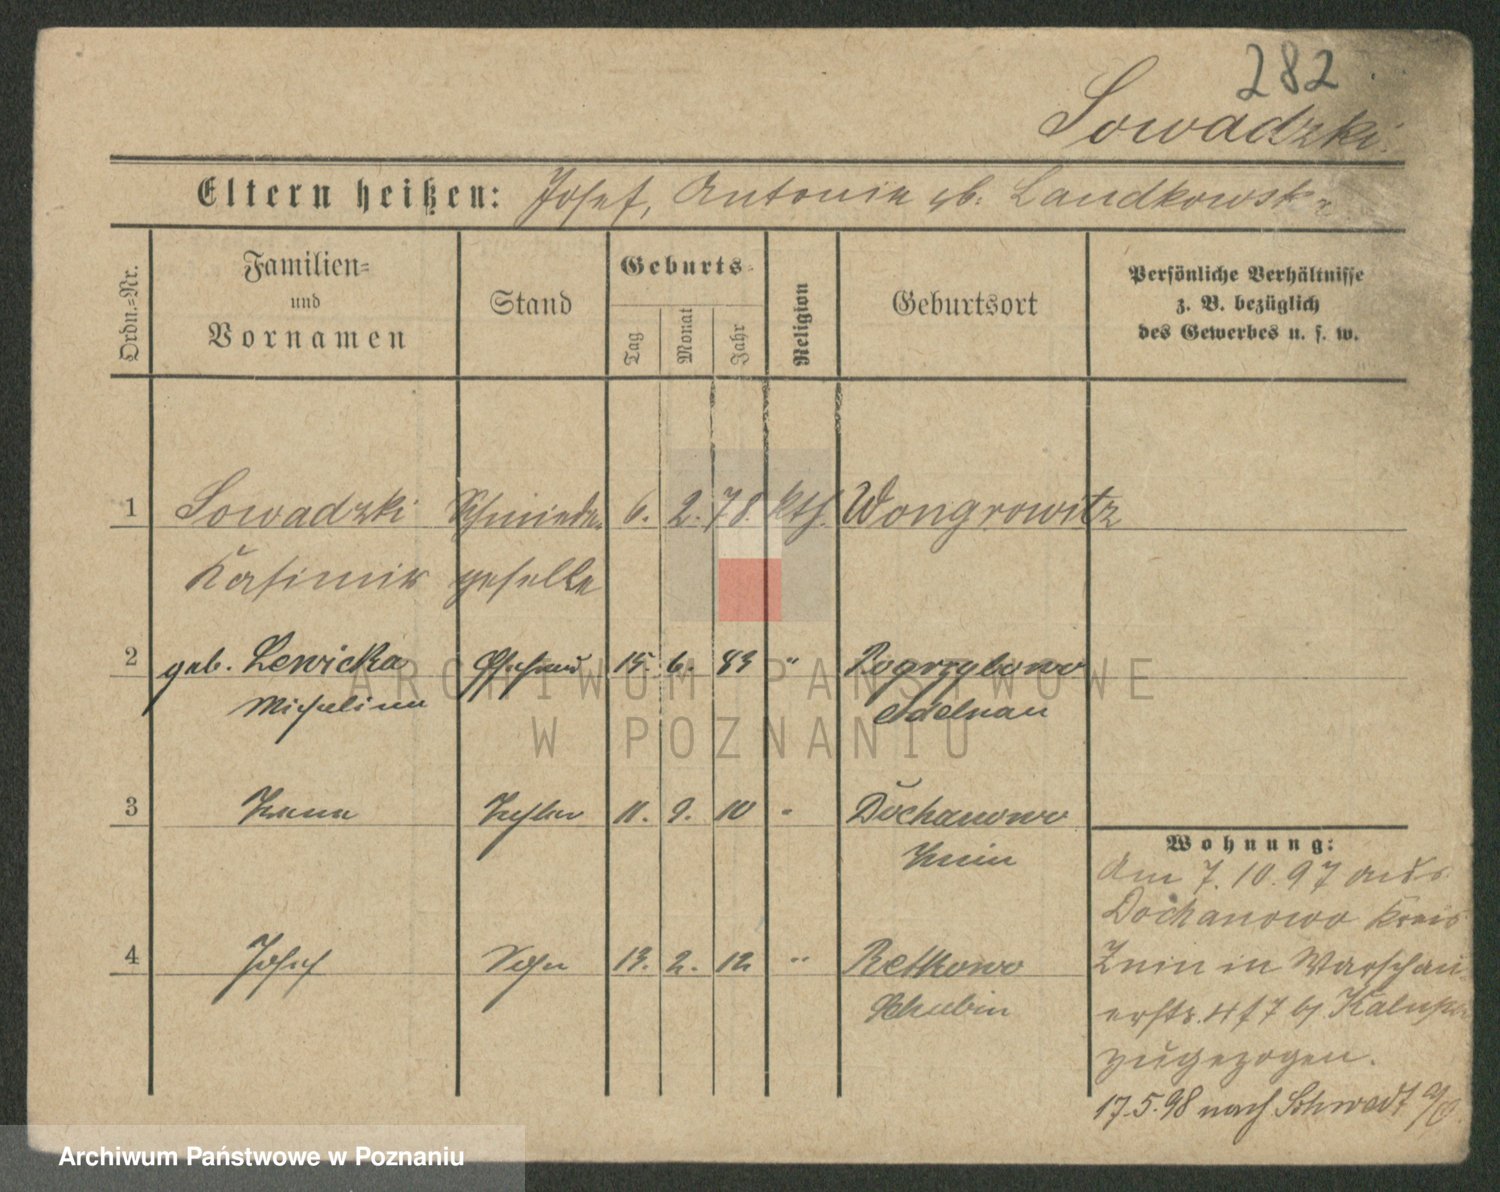 282
Sowadzki.
Eltern heißen: Josef, Antonie gb. Landkowska
Ordn.-Nr.
Familien=
und
Vornamen
Stand
Geburts=
Tag
Monat
Jahr
Religion
Geburtsort
Persönliche Verhältnisse
z. B. bezüglich
des Gewerbes u. s. w.
1 Sowadzki Schmiede- 6. 2. 78. kth. Wongrowitz
Kasimir geselle
2 geb. Lewicka Ehefrau 15. 6. 83 " Pogrzybowo
Michalina Adelnau
3 Tochter 11. 9. 10 " Dochanowo
Znin
4 Josef Sohn 13. 2. 12 " Retkowo
Schubin
Wohnung:
Am 7. 10. 97 aus
Dochanowo Kreis
Znin in Warschau
erstr. bj
zugezogen.
17.5.98 nach Schwedt a/O.
ARCHIWUM PAŃSTWOWE
W POZNANIU
Archiwum Państwowe w Poznaniu